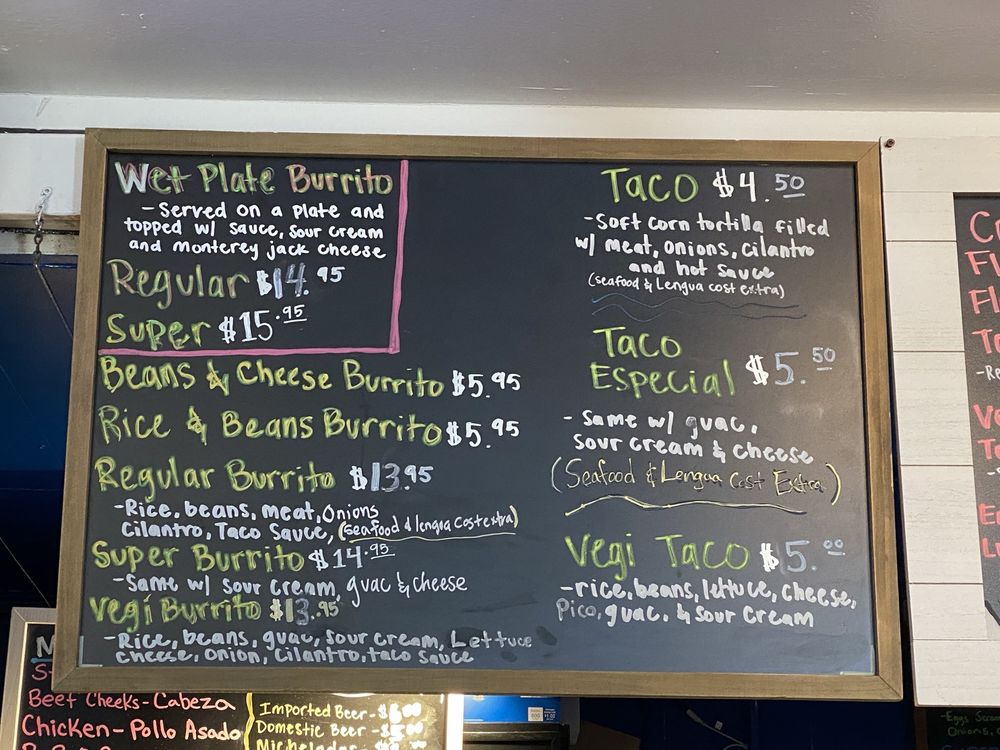 Wet Plate Burrito
- Served on a plate and
topped w/ sauce, sour cream
and monterey jack cheese
Regular $14.95
Super $15.95
Beans & Cheese Burrito $5.95
Rice & Beans Burrito $5.95
Regular Burrito $13.95
- Rice, beans, meat, Onions
Cilantro, Taco Sauce, (seafood & lengua cost extra)
Super Burrito $14.95
- Same w/ sour cream, guac & cheese
Vegi Burrito $13.95
- Rice, beans, guac, sour cream, Lettuce
cheese, onion, cilantro, taco sauce
Taco $4.50
- Soft corn tortilla filled
w/ meat, onions, cilantro
and hot sauce
(seafood & Lengua cost extra)
Taco
Especial $5.50
- Same w/ guac,
sour cream & cheese
(Seafood & Lengua Cost Extra)
Vegi Taco $5.00
- rice, beans, lettuce, cheese,
Pico, guac, & sour cream
Beef Cheeks - Cabeza
Chicken - Pollo Asado
Imported Beer -
Domestic Beer -